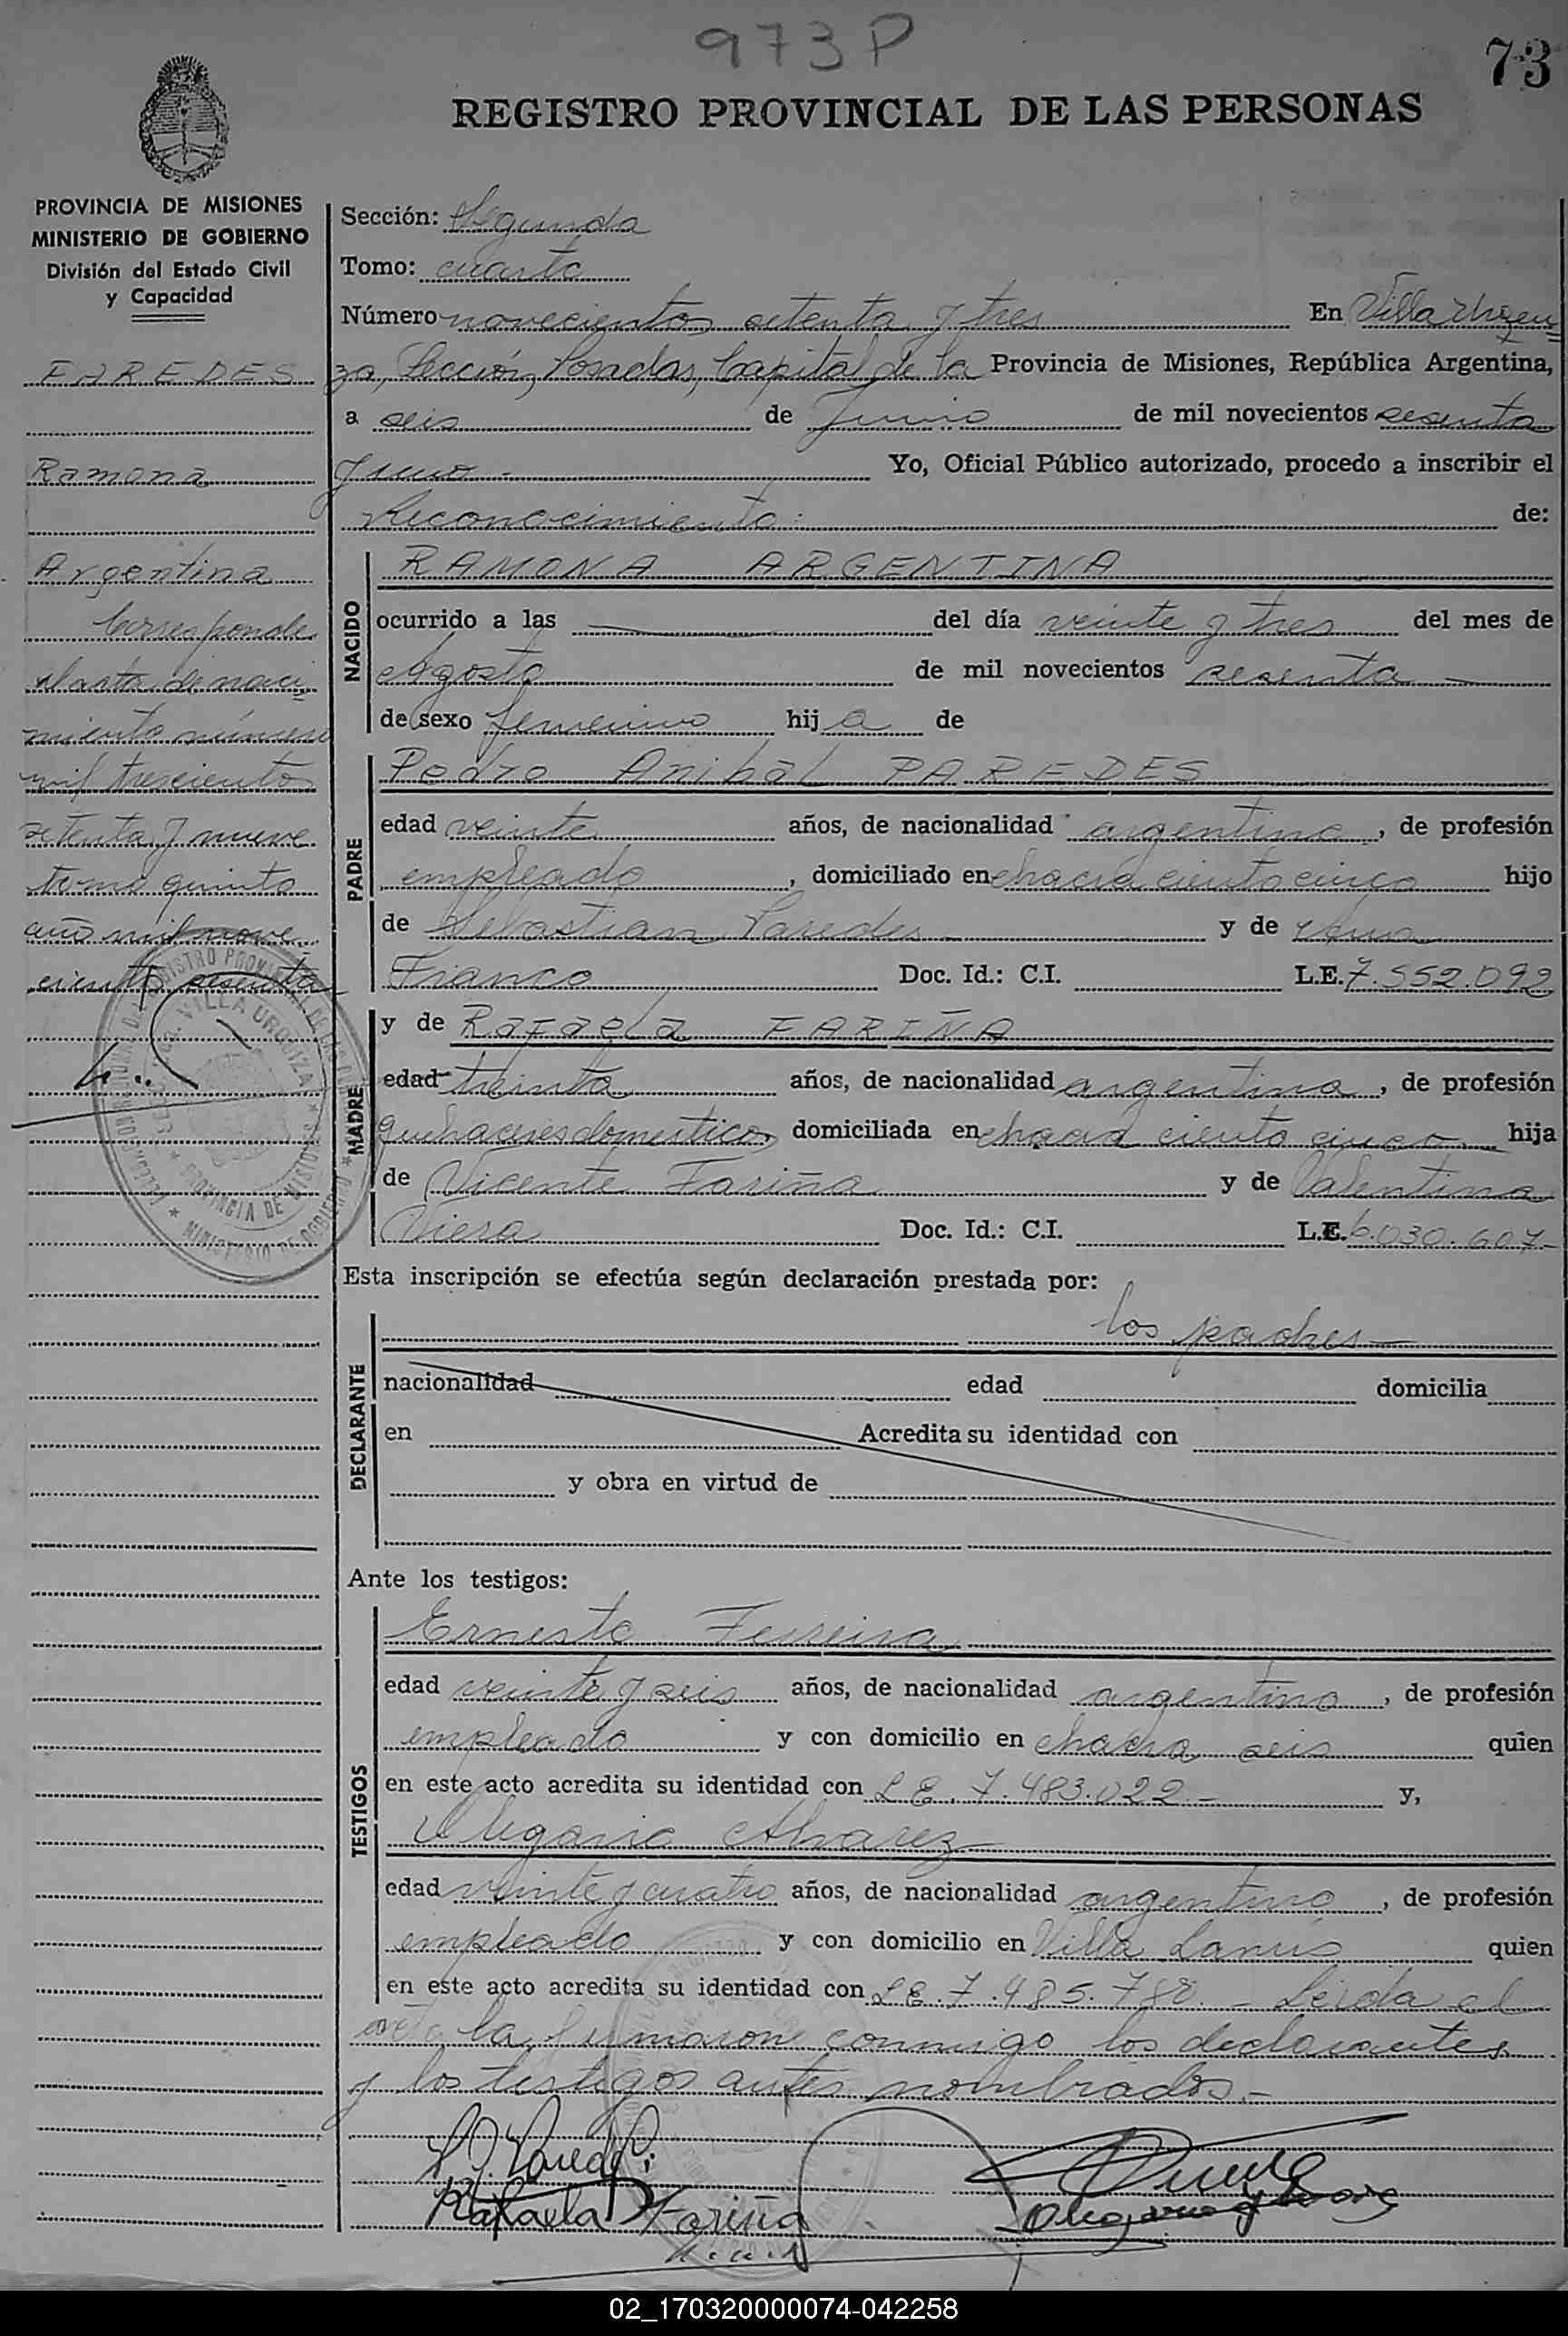 973P
73
REGISTRO PROVINCIAL DE LAS PERSONAS
PROVINCIA DE MISIONES
MINISTERIO DE GOBIERNO
División del Estado Civil
y Capacidad
PAREDES
Ramona
Argentina
Corresponde
al acta de naci
miento número
mil trescientos
setenta y nueve
tomo quinto
año mil nove
cientos sesenta
Sección: Segunda
Tomo: cuarto
Número novecientos setenta y tres En Villa Urqui
za, Sección, Posadas, Capital de la Provincia de Misiones, República Argentina,
a seis de Junio de mil novecientos sesenta
y uno - Yo, Oficial Público autorizado, procedo a inscribir el
Reconocimiento de:
NACIDO
RAMONA ARGENTINA
ocurrido a las del día veinte y tres del mes de
Agosto de mil novecientos sesenta
de sexo femenino hija de
PADRE
Pedro Anibal PAREDES
edad veinte años, de nacionalidad argentino, de profesión
empleado, domiciliado en chacra ciento cinco hijo
de Sebastian Paredes y de
Franco Doc. Id.: C.I. L.E. 7.552.092
MADRE
y de Rafaela FARIÑA
edad treinta años, de nacionalidad argentina, de profesión
quehaceres domesticos domiciliada en chacra ciento cinco hija
de Vicente Fariña y de Valentina
Viera Doc. Id.: C.I. L.E. 6.030.607
Esta inscripción se efectúa según declaración prestada por:
DECLARANTE
los padres
nacionalidad edad domicilia
en Acredita su identidad con
y obra en virtud de
Ante los testigos:
TESTIGOS
Ernesto Ferreira
edad veinte y seis años, de nacionalidad argentino, de profesión
empleado y con domicilio en chacra seis quien
en este acto acredita su identidad con L.E. 7.483.022.- y,
Olegario Alvarez
edad veinte y cuatro años, de nacionalidad argentino, de profesión
empleado y con domicilio en Villa Lanús quien
en este acto acredita su identidad con L.E. 7.485.788.- Leída el
acta la firmaron conmigo los declarantes
y los testigos antes nombrados.-
Rafaela Fariña
02_170320000074-042258